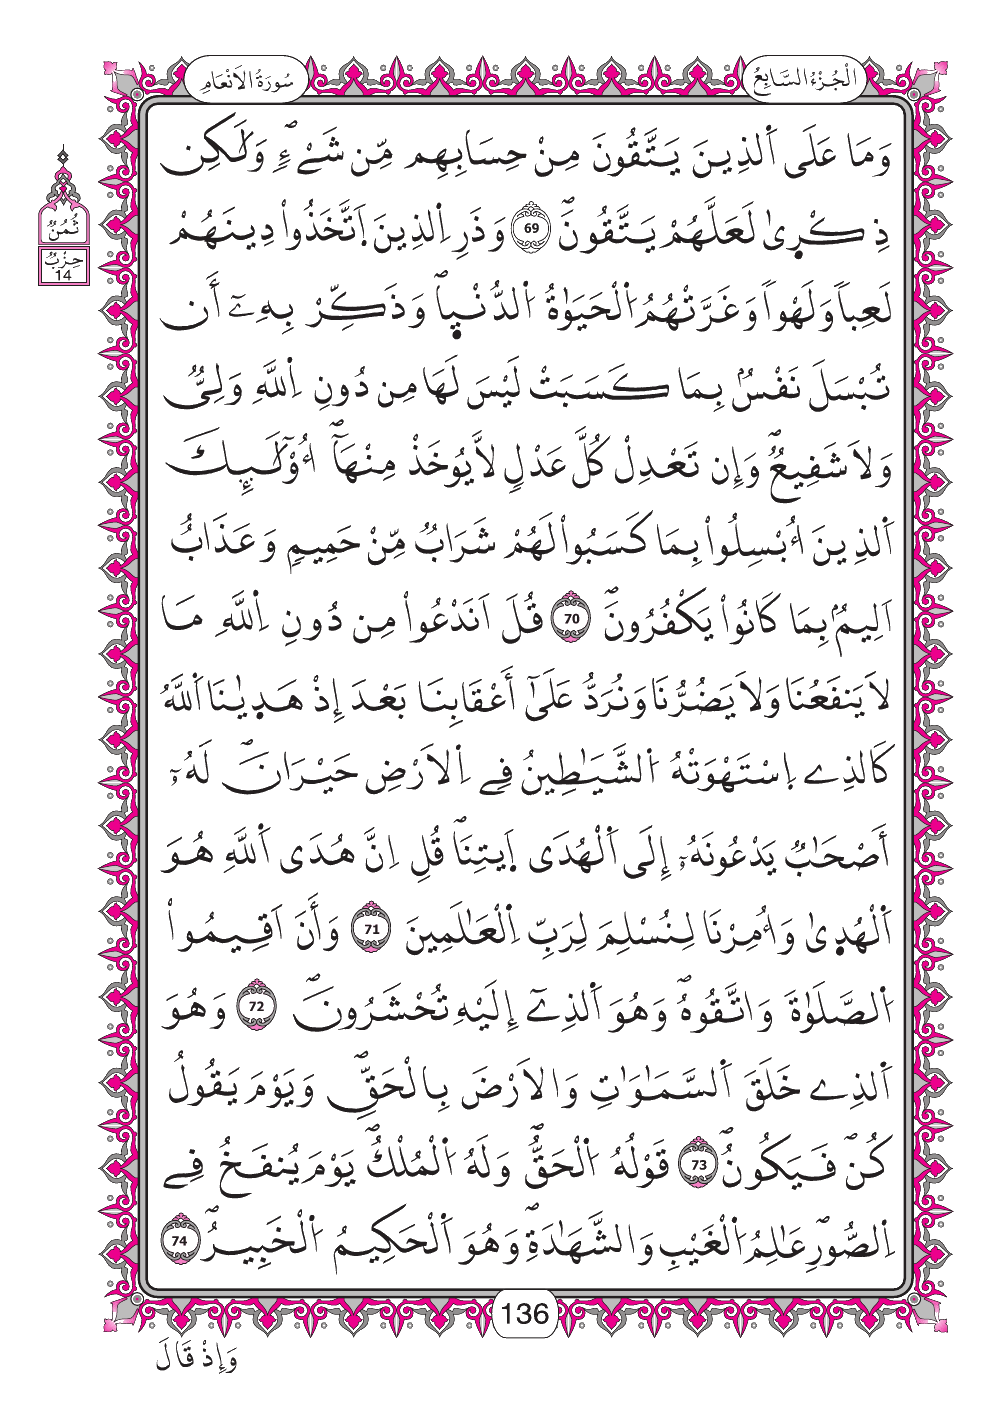 سُورَةُ الَانْعَامِ
الْجُزْءُ السَّابِعُ
وَمَا عَلَى اَ۬لذِينَ يَتَّقُونَ مِنْ حِسَابِهِم مِّن شَےْءٖۖ وَلَٰكِن
ذِكْر۪ىٰ لَعَلَّهُمْ يَتَّقُونَۖ 69 وَذَرِ اِ۬لذِينَ اَ۪تَّخَذُواْ دِينَهُمْ
لَعِباٗ وَلَهْواٗ وَغَرَّتْهُمُ اُ۬لْحَيَوٰةُ اُ۬لدُّنْي۪اۖ وَذَكِّرْ بِهِۦٓ أَن
تُبْسَلَ نَفْسُۢ بِمَا كَسَبَتْ لَيْسَ لَهَا مِن دُونِ اِ۬للَّهِ وَلِيّٞ
وَلَا شَفِيعٞۖ وَإِن تَعْدِلْ كُلَّ عَدْلٖ لَّا يُوخَذْ مِنْهَآۖ أُوْلَٰٓئِكَ
اَ۬لذِينَ أُبْسِلُواْ بِمَا كَسَبُواْ لَهُمْ شَرَابٞ مِّنْ حَمِيمٖ وَعَذَابٌ
اَلِيمُۢ بِمَا كَانُواْ يَكْفُرُونَۖ 70 قُلَ اَنَدْعُواْ مِن دُونِ اِ۬للَّهِ مَا
لَا يَنفَعُنَا وَلَا يَضُرُّنَا وَنُرَدُّ عَلَىٰٓ أَعْقَابِنَا بَعْدَ إِذْ هَد۪يٰنَا اَ۬للَّهُ
كَالذِے اِ۪سْتَهْوَتْهُ اُ۬لشَّيَٰطِينُ فِے اِ۬لَارْضِ حَيْرَانَۖ لَهُۥٓ
أَصْحَٰبٞ يَدْعُونَهُۥٓ إِلَى اَ۬لْهُدَى اَ۪يتِنَاۖ قُلِ اِنَّ هُدَى اَ۬للَّهِ هُوَ
اَ۬لْهُد۪ىٰ وَأُمِرْنَا لِنُسْلِمَ لِرَبِّ اِ۬لْعَٰلَمِينَ 71 وَأَنَ اَقِيمُواْ
اُ۬لصَّلَوٰةَ وَاتَّقُوهُۖ وَهُوَ اَ۬لذِےٓ إِلَيْهِ تُحْشَرُونَۖ 72 وَهُوَ
اَ۬لذِے خَلَقَ اَ۬لسَّمَٰوَٰتِ وَالَارْضَ بِالْحَقِّۖ وَيَوْمَ يَقُولُ
كُنۖ فَيَكُونُۖ 73 قَوْلُهُ اُ۬لْحَقُّۖ وَلَهُ اُ۬لْمُلْكُۖ يَوْمَ يُنفَخُ فِے
اِ۬لصُّورِۖ عَٰلِمُ اُ۬لْغَيْبِ وَالشَّهَٰدَةِۖ وَهُوَ اَ۬لْحَكِيمُ اُ۬لْخَبِيرُۖ 74
ثُمُنٌ
حِزْبٌ
14
136
وَإِذْ قَالَ